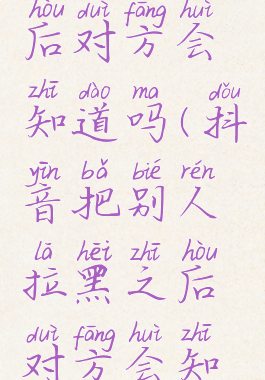 hòu duì fāng huì
后对方会
zhī dào ma dǒu
知道吗(抖
yīn bǎ bié rén
音把别人
lā hēi zhī hòu
拉黑之后
duì fāng huì zhī
对方会知